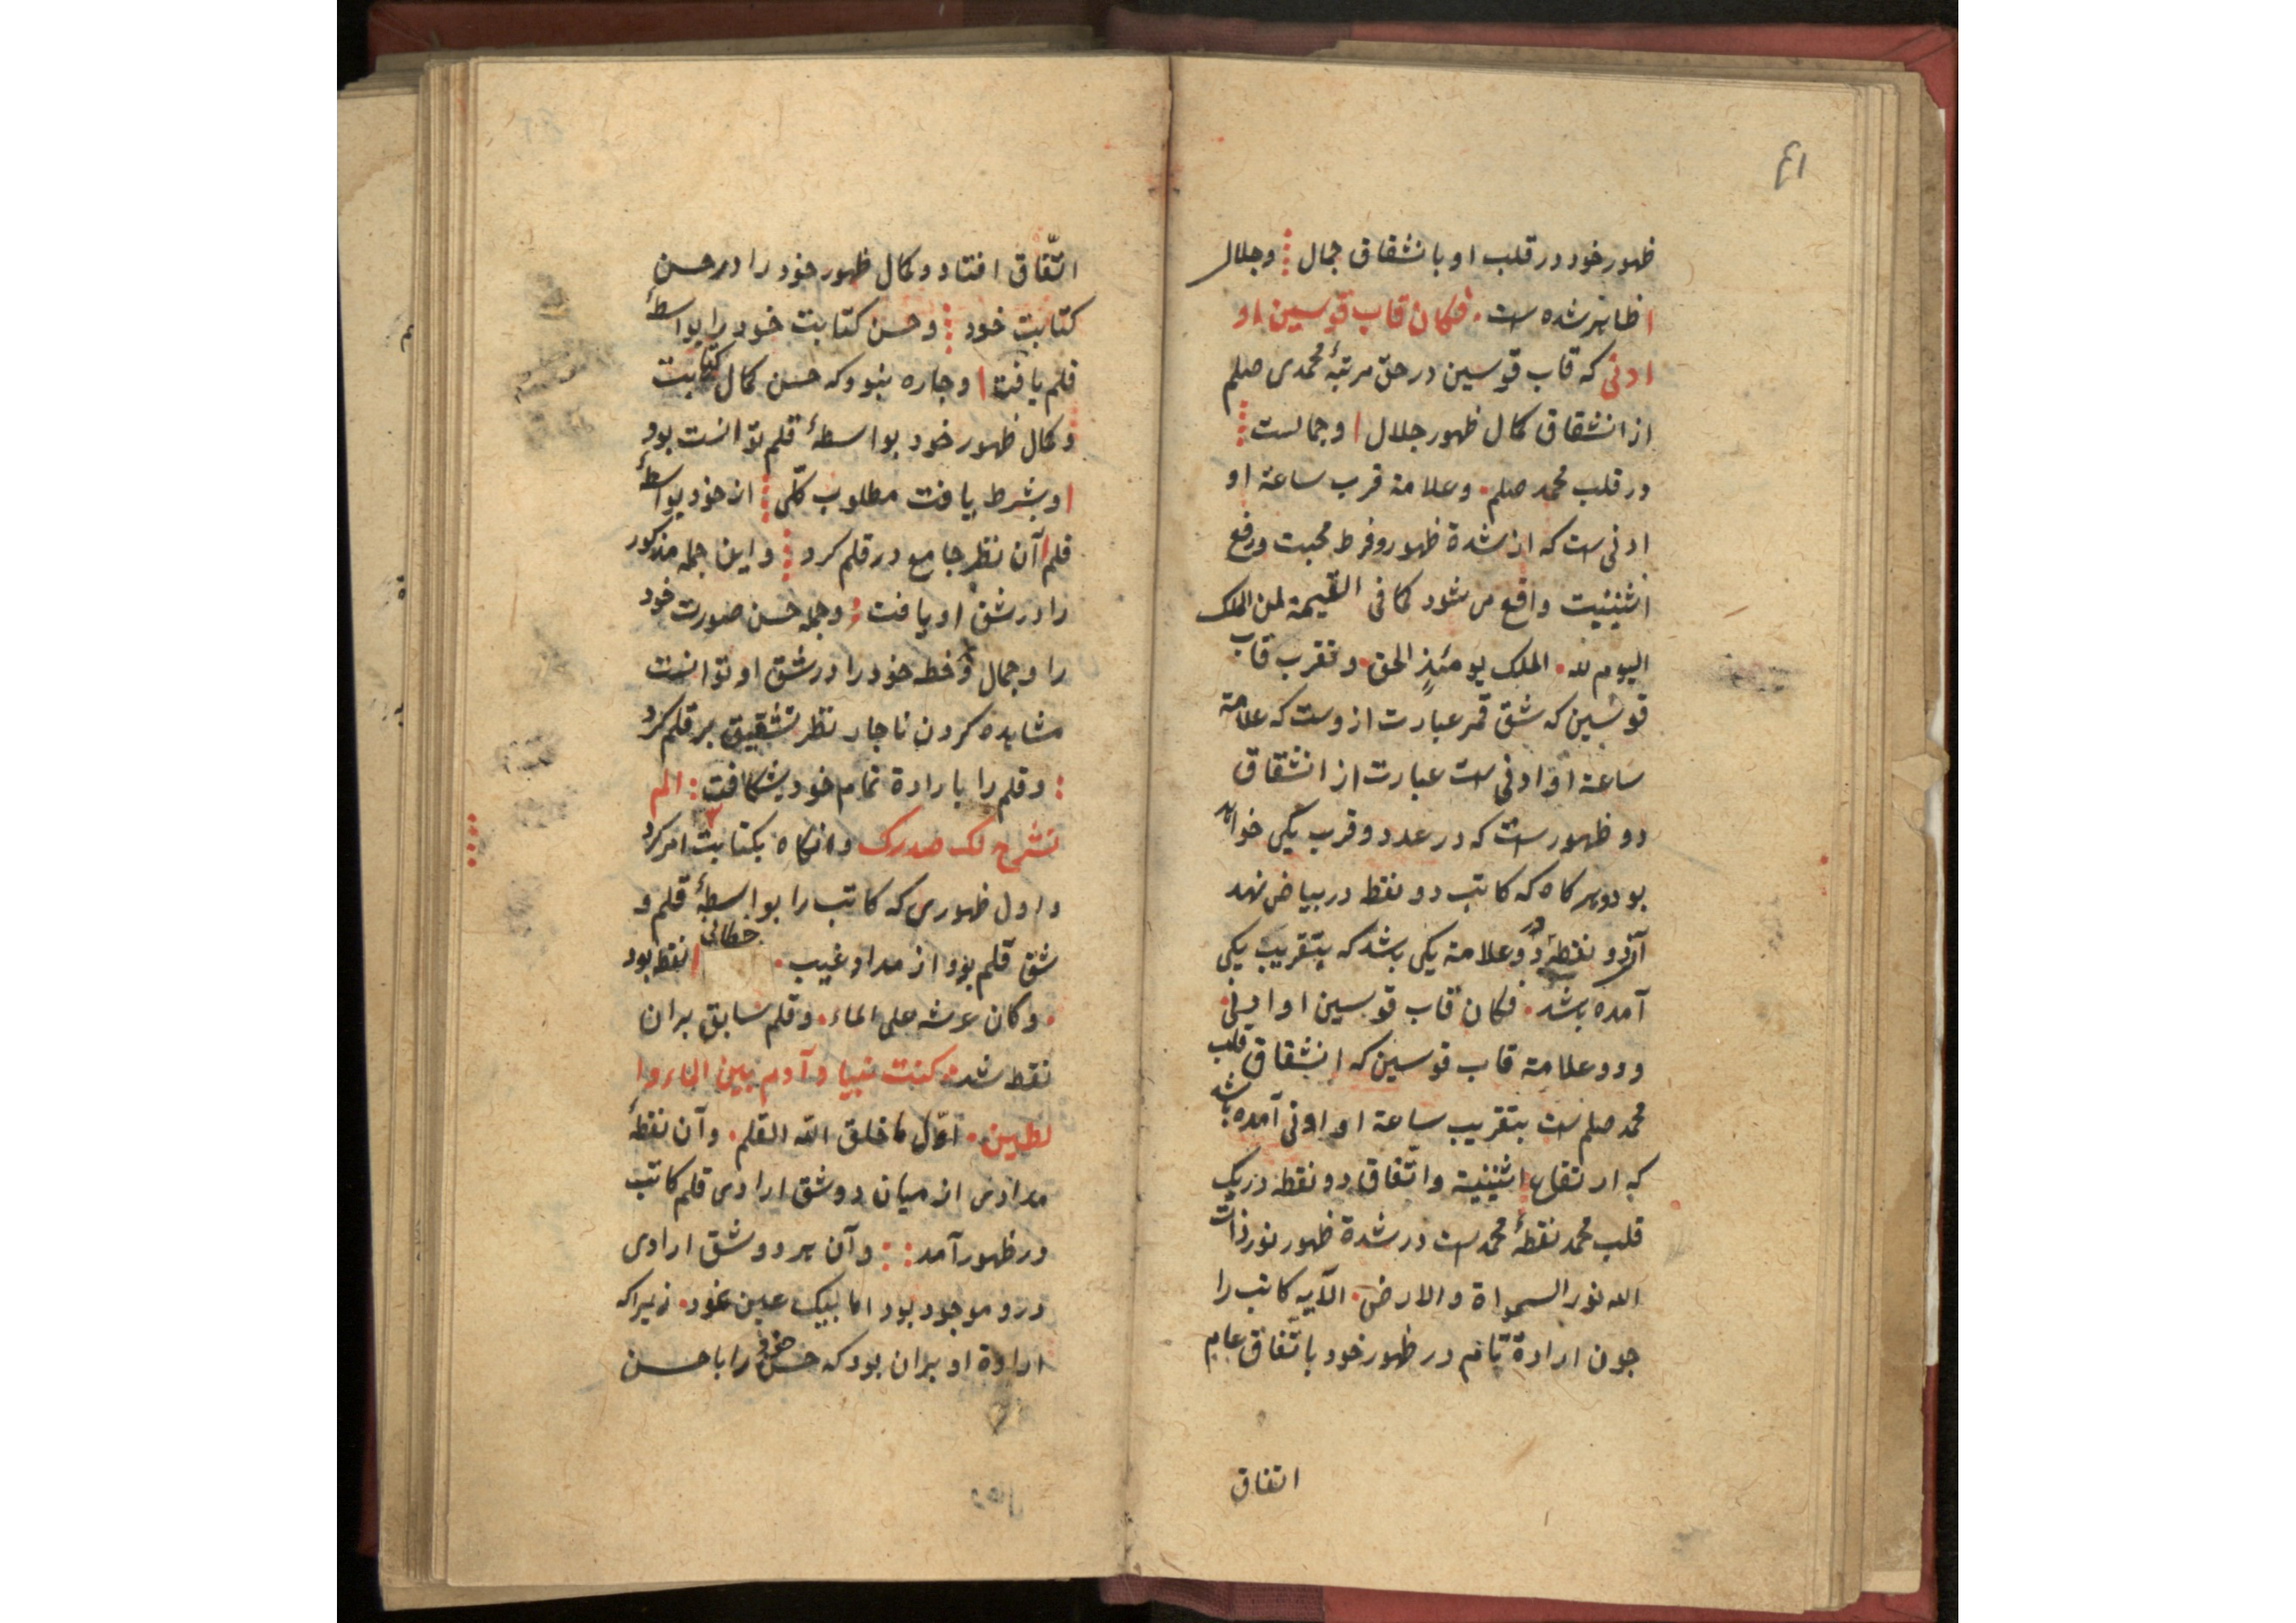 ۴۱
ظهور خود در قلب او بانشقاق جمال وجلال
ظاهر شده ست فكان قاب قوسين او
ادنى كه قاب قوسين در حق مرتبهٔ محمدى صلم
از انشقاق كمال ظهور جلال وجمالست
در قلب محمد صلم وعلامة قرب ساعة او
ادنى ست كه از شدة ظهور و فرط محبت ورفع
اثنينيت واقع مى شود كما فى القيمة لمن الملك
اليوم لله الملك يومئذٍ الحق و تقرب قاب
قوسين كه شق قمر عبارت ازوست كه علامة
ساعة او ادنى ست عبارت از انشقاق
دو ظهورست كه در عدد و قرب يكى خواهد
بود و هر كاه كه كاتب دو نقط در بياض نهد
آن دو نقطهٔ دو علامة يكى باشد كه بتقريب يكى
آمده باشد فكان قاب قوسين او ادنى
ودو علامة قاب قوسين كه انشقاق قلب
محمد صلم ست بتقريب ساعة او ادنى آمده باشد
كه ارتفاع اثنينية واتّفاق دو نقطه در يك
قلب محمد نقطهٔ محمد ست در شدة ظهور نور ذات
الله نور السمواة والارض الآيه كاتب را
جون ارادة تام در ظهور خود باتّفاق عام
اتفاق
اتّفاق افتاد و كمال ظهور خود را در حسن
كتابت خود وحسن كتابت خود را بواسطهٔ
قلم يافت وجاره نبود كه حسن كمال كتابت
و كمال ظهور خود بواسطهٔ قلم توانست بود
وبشرط يافت مطلوب كلّى از خود بواسطهٔ
قلم آن نظر جامع در قلم كرد واين جمله مذكور
را در شق او يافت وجمله حسن صورت خود
را وجمال وخط خود را در شق او توانست
مشاهده كردن ناجار نظر تشقيق بر قلم كرد
و قلم را بارادة تمام خود بشكافت الم
نشرح لك صدرك وانكاه بكتابت امر كرد
واول ظهورى كه كاتب را بواسطهٔ قلم و
شق قلم بود از مداد غيب خطائى نقط بود
وكان عرشه على الماء وقلم سابق بران
نقط شد كنت نبيا وآدم بين الماء وا
لطين اوّل ما خلق الله القلم وآن نقطهٔ
مدادى از ميان دو شق ارادى قلم كاتب
در ظهور آمد وآن هر دو شق ارادى
درو موجود بود اما بيك عين نمود زيراكه
ارادة او بران بود كه حسن خود را با حسن